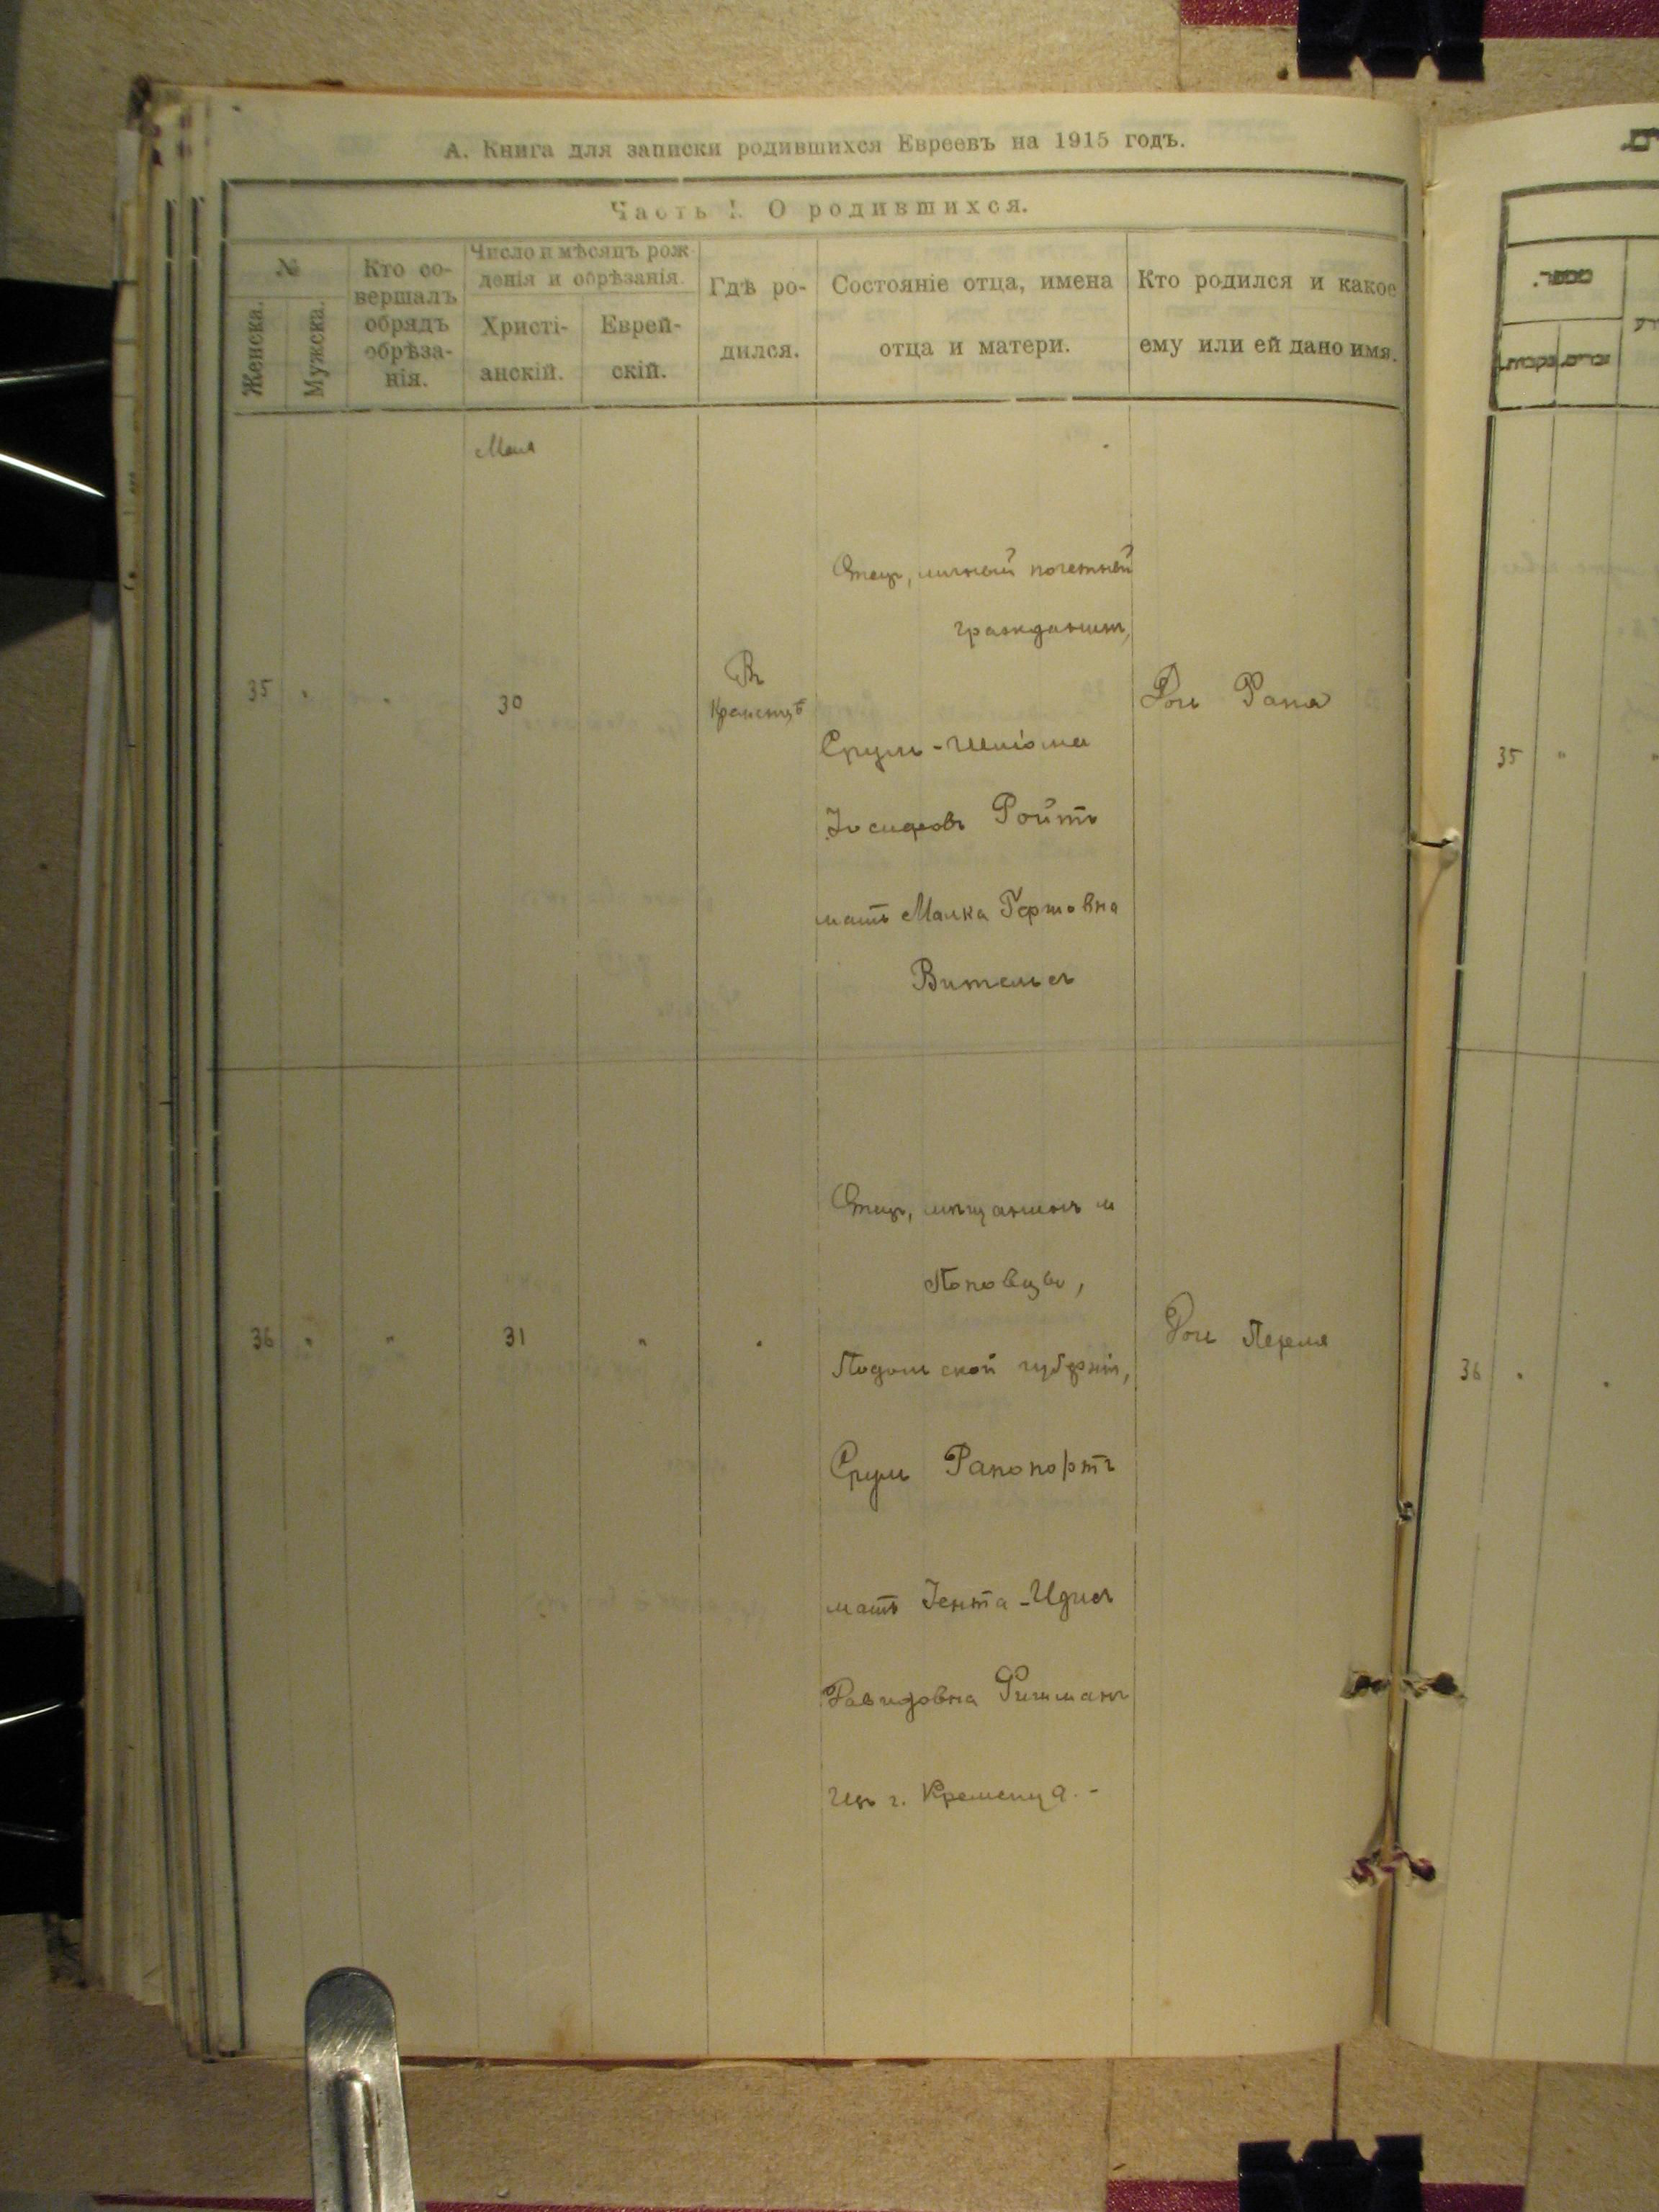 А. Книга для записки родившихся Евреевъ на 1915 годъ.
Часть I. О родившихся.
№
Женска.
Мужска.
Кто со-
вершалъ
обрядъ
обрѣза-
нія.
Число и мѣсяцъ рож-
денія и обрѣзанія.
Христі-
анскій.
Еврей-
скій.
Гдѣ ро-
дился.
Состояніе отца, имена
отца и матери.
Кто родился и какое
ему или ей дано имя.
Мая
35 " " 30
Въ
Кременцѣ
Отецъ, личный почетный
гражданинъ,
Сруль-Шліома
Іосифовъ Ройтъ
мать Малка Гершовна
Вительсъ
Дочь
36 " " 31 " "
Отецъ, мѣщанинъ м
Поповцы,
Подольской губерніи,
Сруль Рапопортъ
мать Іента-Идисъ
Давидовна Фишманъ
Изъ г. Кременца. -
Дочь Перля
35 " "
36 " "